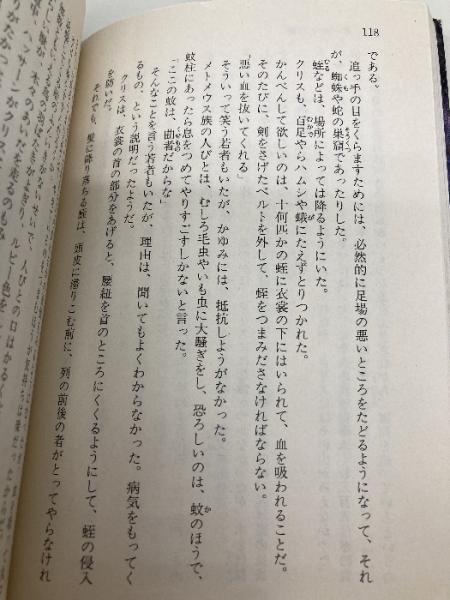 118
である。
追っ手の目をくらますためには、必然的に足場の悪いところをたどるようになって、それ
が、蜘蛛や蛇の巣窟であったりした。
蛭などは、場所によっては降るようにいた。
クリスも、百足やらハムシや蟻にたえずとりつかれた。
かんべんして欲しいのは、十何匹かの蛭に衣裳の下にはいられて、血を吸われることだ。
そのたびに、剣をさげたベルトを外して、蛭をつまみださなければならない。
「悪い血を抜いてくれる」
そういって笑う若者もいたが、かゆみには、抵抗しようがなかった。
メトメウス族の人びとは、むしろ毛虫やいも虫に大騒ぎをし、恐ろしいのは、蚊のほうで、
蚊柱にあったら息をつめてやりすごすしかないと言った。
「ここの蚊は、曲者だからな」
そんなことを言う若者もいたが、理由は、聞いてもよくわからなかった。病気をもってく
るもの、という説明だったようだ。
クリスは、衣裳の首の部分をあげると、腰紐を首のところにくくるようにして、蛭の侵入
を防いだ。
それでも、髪に降り落ちる蛭は、頭皮に潜りこむ前に、列の前後の者がとってやらなけれ